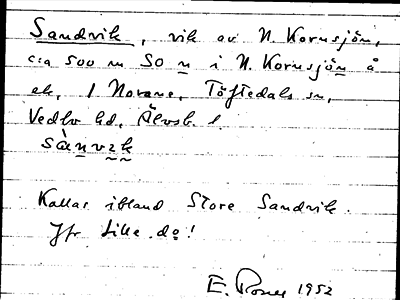 Sandvik, vik av N. Kornsjön,
c:a 500 m SO n i N. Kornsjön å
ek. 1 Norane, Töftedals sn,
Vedbo hd, Älvsb. l.
sànvɪk
Kallas ibland Store Sandvik.
Jfr Lille do!
E. 1952